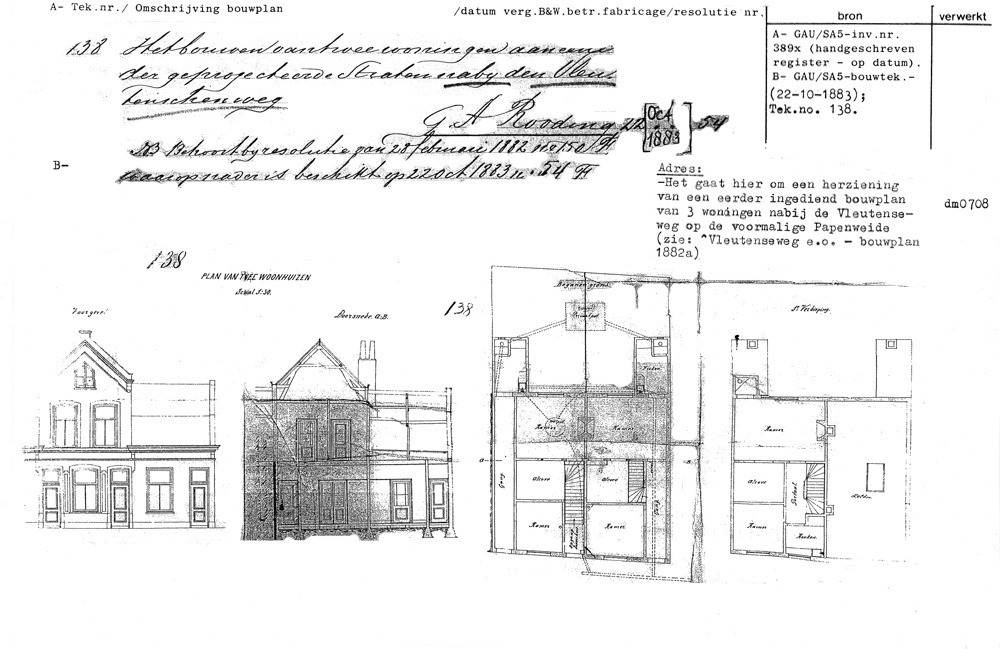 A- Tek.nr./ Omschrijving bouwplan
/datum verg.B&W.betr.fabricage/resolutie nr.
bron
verwerkt
138 Het bouwen van twee woningen aan eene
der geprojecteerde Straten naby den Vleu
tenschen weg
G A Rooding 22 [Oct 1883] 54
B-
NB Behoort by resolutie van 28 februari 1882 no 150 F
waarop nader is beschikt op 22 Oct 1883 n. 54 F
A- GAU/SA5-inv.nr.
389x (handgeschreven
register - op datum).
B- GAU/SA5-bouwtek.-
(22-10-1883);
Tek.no. 138.
Adres:
-Het gaat hier om een herziening
van een eerder ingediend bouwplan
van 3 woningen nabij de Vleutense-
weg op de voormalige Papenweide
(zie: ^Vleutenseweg e.o. - bouwplan
1882a)
dm0708
138
PLAN VAN TWEE WOONHUIZEN
Schaal 1:50.
Voorgevel
Doorsnede. A:B.
138
Beganen grond
Privaatput
Keuken
Kamer
Kamer
A
B
Gang
Alcove
Alcove
Kamer
Kamer
Gang
1e Verdieping.
Kamer
Alcove
Portaal
Zolder
Kamer
Keuken